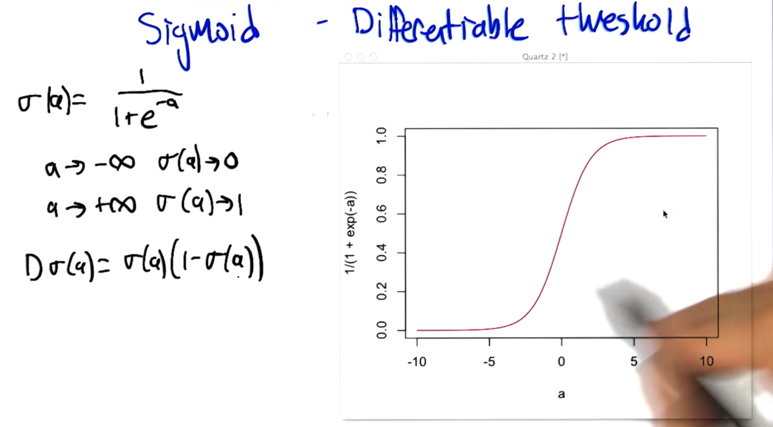 Sigmoid - Differentiable threshold
σ(a)= 1/(1+e^-a)
a→-∞ σ(a)→0
a→+∞ σ(a)→1
Dσ(a)= σ(a)(1-σ(a))
Quartz 2 [*]
1/(1 + exp(-a))
1.0
0.8
0.6
0.4
0.2
0.0
-10 -5 0 5 10
a